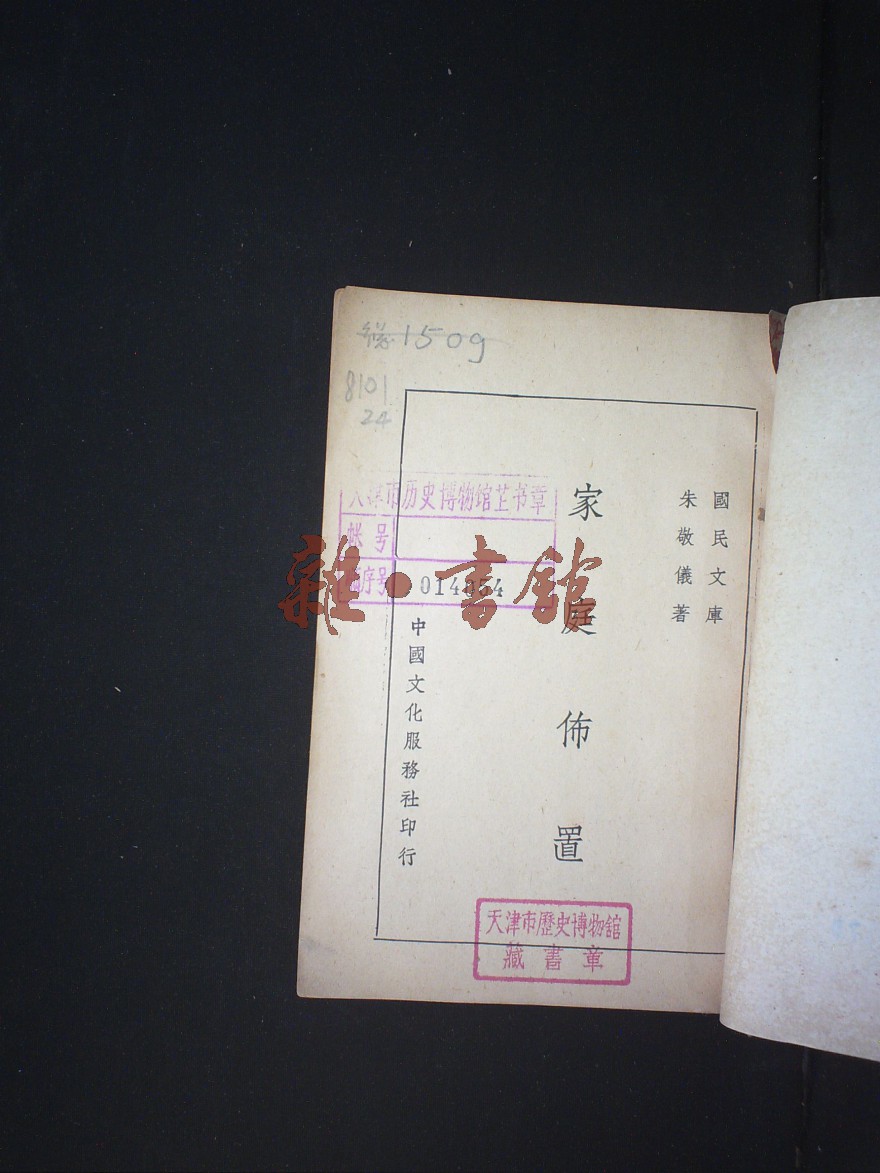 總1509
8101
24
國民文庫
朱敬儀著
家庭佈置
中國文化服務社印行
天津市历史博物馆芷书章
帐号
总序号 014054
雜·書館
天津市歷史博物館
藏書章